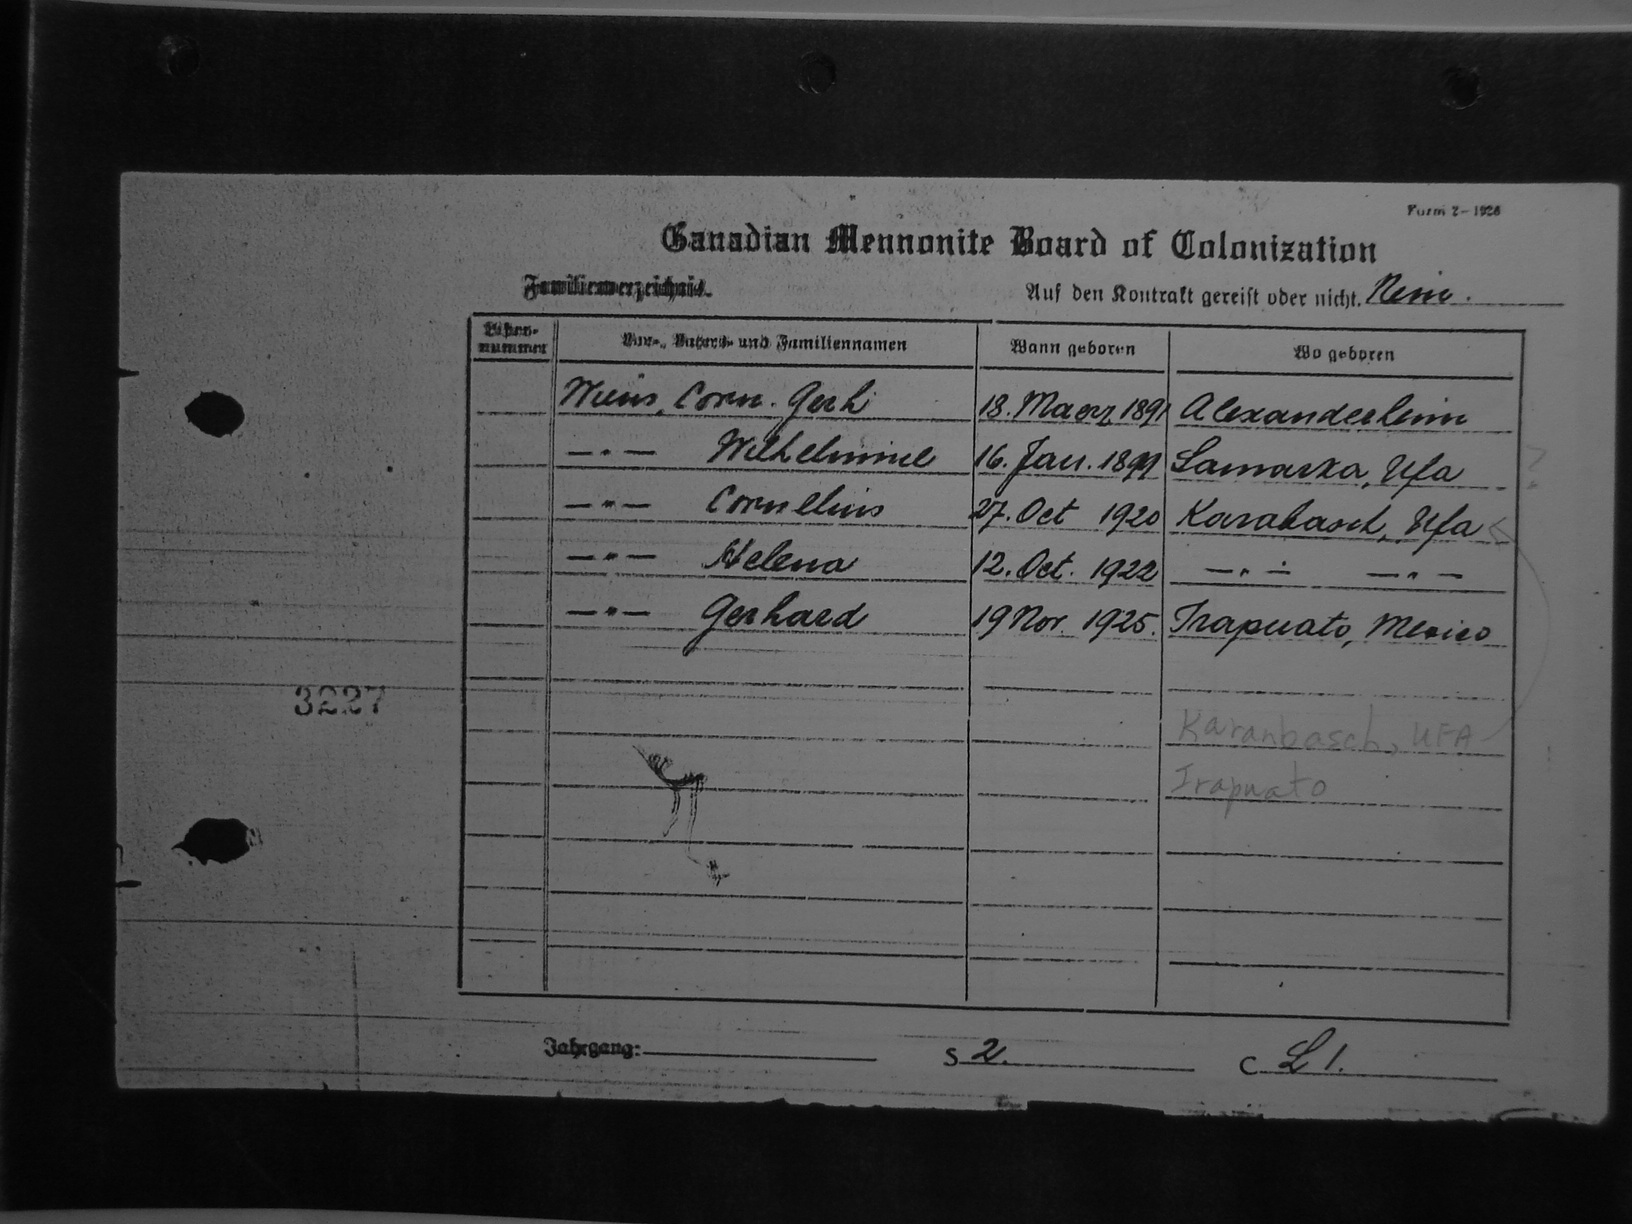 Form 2-1926
Canadian Mennonite Board of Colonization
Familienverzeichnis. Auf den Kontrakt gereist oder nicht. Nein.
Listen-nummer Vor-, Vaters- und Familiennamen Wann geboren Wo geboren
Wiens, Corn. Gerh 18. Maerz 1891 Alexanderheim
—"— Wilhelmine 16. Jan. 1899 Samarka, Ufa
—"— Cornelius 27. Oct 1920 Karabasch, Ufa
—"— Helena 12. Oct. 1922 —"— —"—
—"— Gerhard 19 Nov. 1925. Irapuato, Mexico
3227
Karanbasch, UFA
Irapuato
Jahrgang: S 2. C L 1.